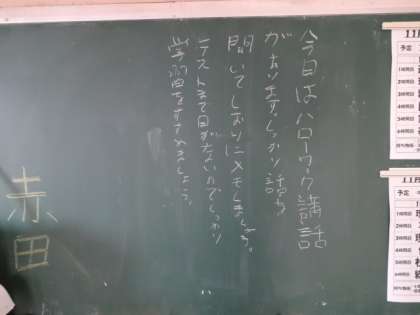 今日はハローワーク講話
があります。しっかり話を
聞いてしおりにメモしましょう。
テストまで日がないのでしっかり
学習をすすめましょう。
赤田
11
予定
1時間目
2時間目
3時間目
4時間目
5時間目
6時間目
11月
予定
1時間目
2時間目
3時間目
4時間目
5時間目
6時間目